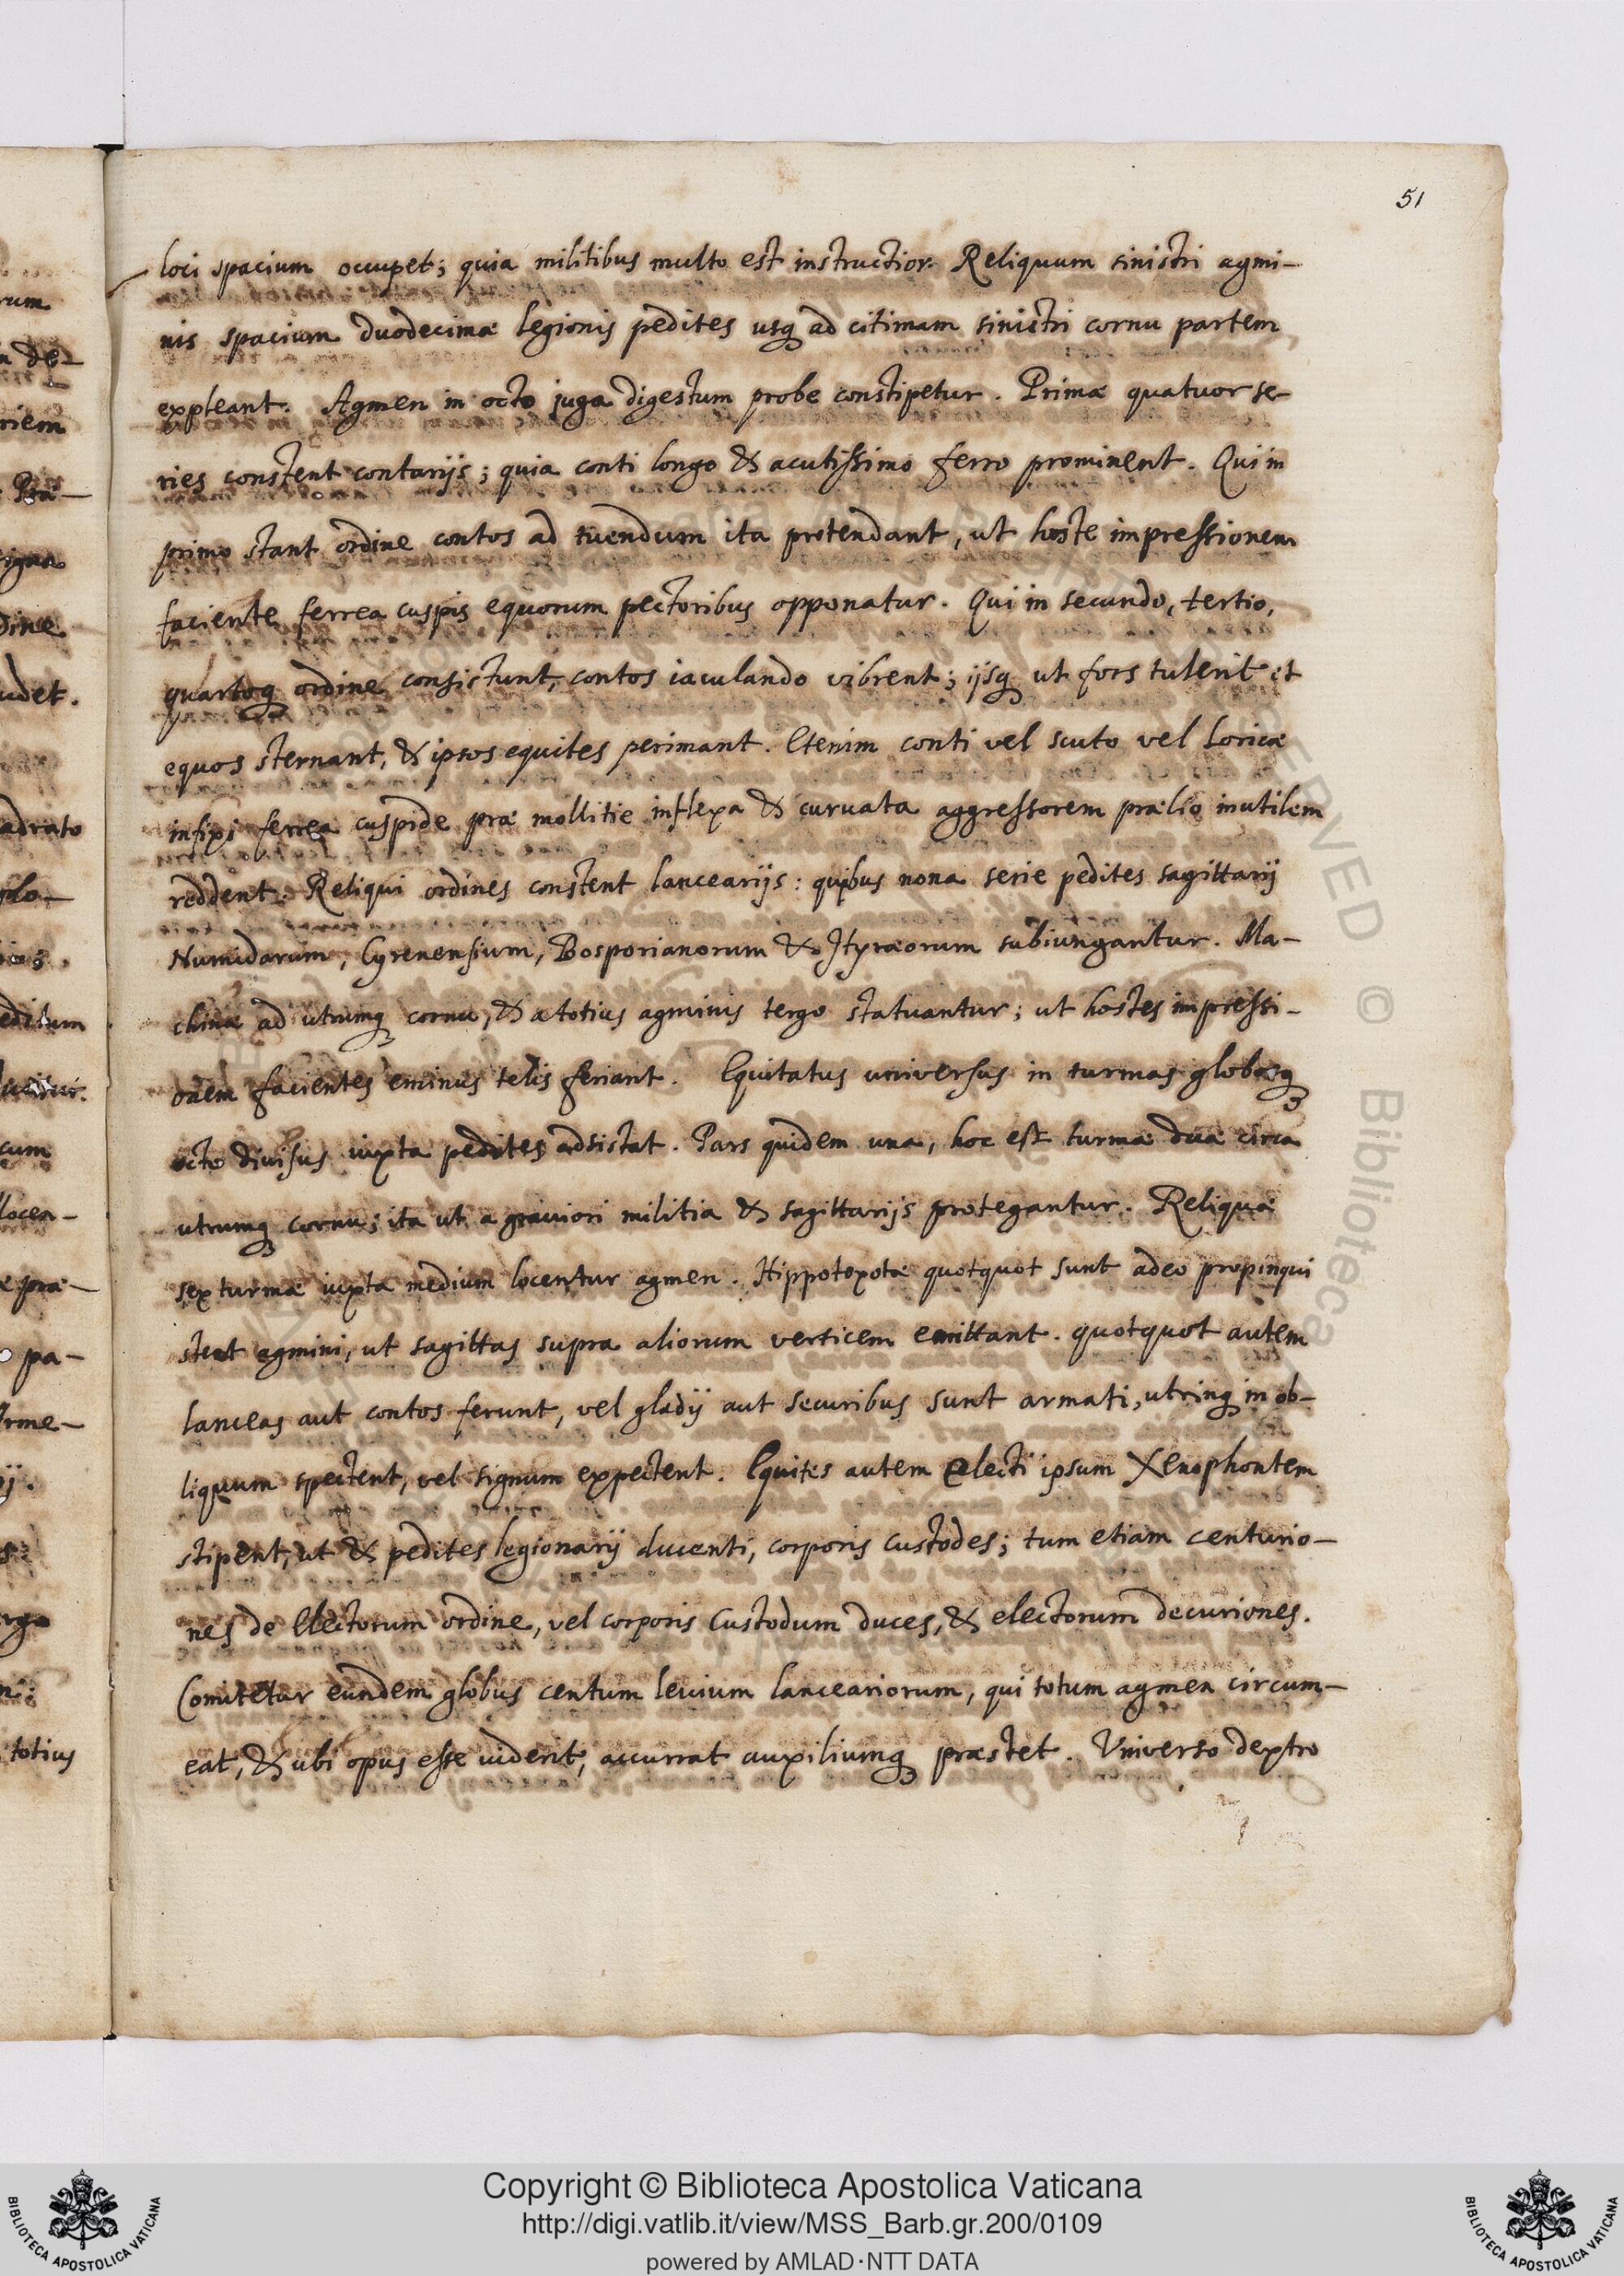 51
loci spacium occupet; quia militibus multo est instructior. Reliquum sinistri agmi-
nis spacium duodecimæ legionis pedites usq; ad citimam sinistri cornu partem
expleant. Agmen in octo juga digestum probe constipetur. Primæ quatuor se-
ries constent contarijs; quia conti longo & acutissimo ferro prominent. Qui in
primo stant ordine contos ad tuendum ita protendant, ut hoste impressionem
faciente ferrea cuspis equorum pectoribus opponatur. Qui in secundo, tertio,
quartoq; ordine consistunt, contos iaculando vibrent; ijsq; ut fors tulerit et
equos sternant, & ipsos equites perimant. Etenim conti vel scuto vel loricæ
infixi ferrea cuspide præ mollitie inflexa & curvata aggressorem prælio inutilem
reddent. Reliqui ordines constent lancearijs: quibus nona serie pedites sagittarij
Numidarum, Cyrenensium, Bosporianorum & Ityræorum subiungantur. Ma-
chinæ ad utrumq; cornu, & a totius agminis tergo statuantur; ut hostes impressi-
onem facientes eminus telis feriant. Equitatus universus in turmas globosq;
octo divisus iuxta pedites adsistat. Pars quidem una, hoc est turmæ duæ circa
utrumq; cornu; ita ut a graviori militia & sagittarijs protegantur. Reliquæ
sex turmæ iuxta medium locentur agmen. Hippotoxotæ quotquot sunt adeo propinqui
stent agmini, ut sagittas supra aliorum verticem emittant. quotquot autem
lanceas aut contos ferunt, vel gladij aut securibus sunt armati, utrinq; in ob-
liquum spectent, vel signum expectent. Equites autem electi ipsum Xenophontem
stipent, ut & pedites legionarij ducenti, corporis custodes; tum etiam centurio-
nes de Electorum ordine, vel corporis Custodum duces, & electorum decuriones.
Comitetur eundem globus centum levium lanceariorum, qui totum agmen circum-
eat, & ubi opus esse viderit, accurrat auxiliumq; præstet. Universo dextro
rum
de-
riem
Præ-
signa
dine
udet.
adrato
glo-
editum
cum
locen-
æ præ-
pa-
rme-
ij.
totius
Copyright © Biblioteca Apostolica Vaticana
http://digi.vatlib.it/view/MSS_Barb.gr.200/0109
powered by AMLAD·NTT DATA
BIBLIOTECA APOSTOLICA VATICANA
BIBLIOTECA APOSTOLICA VATICANA